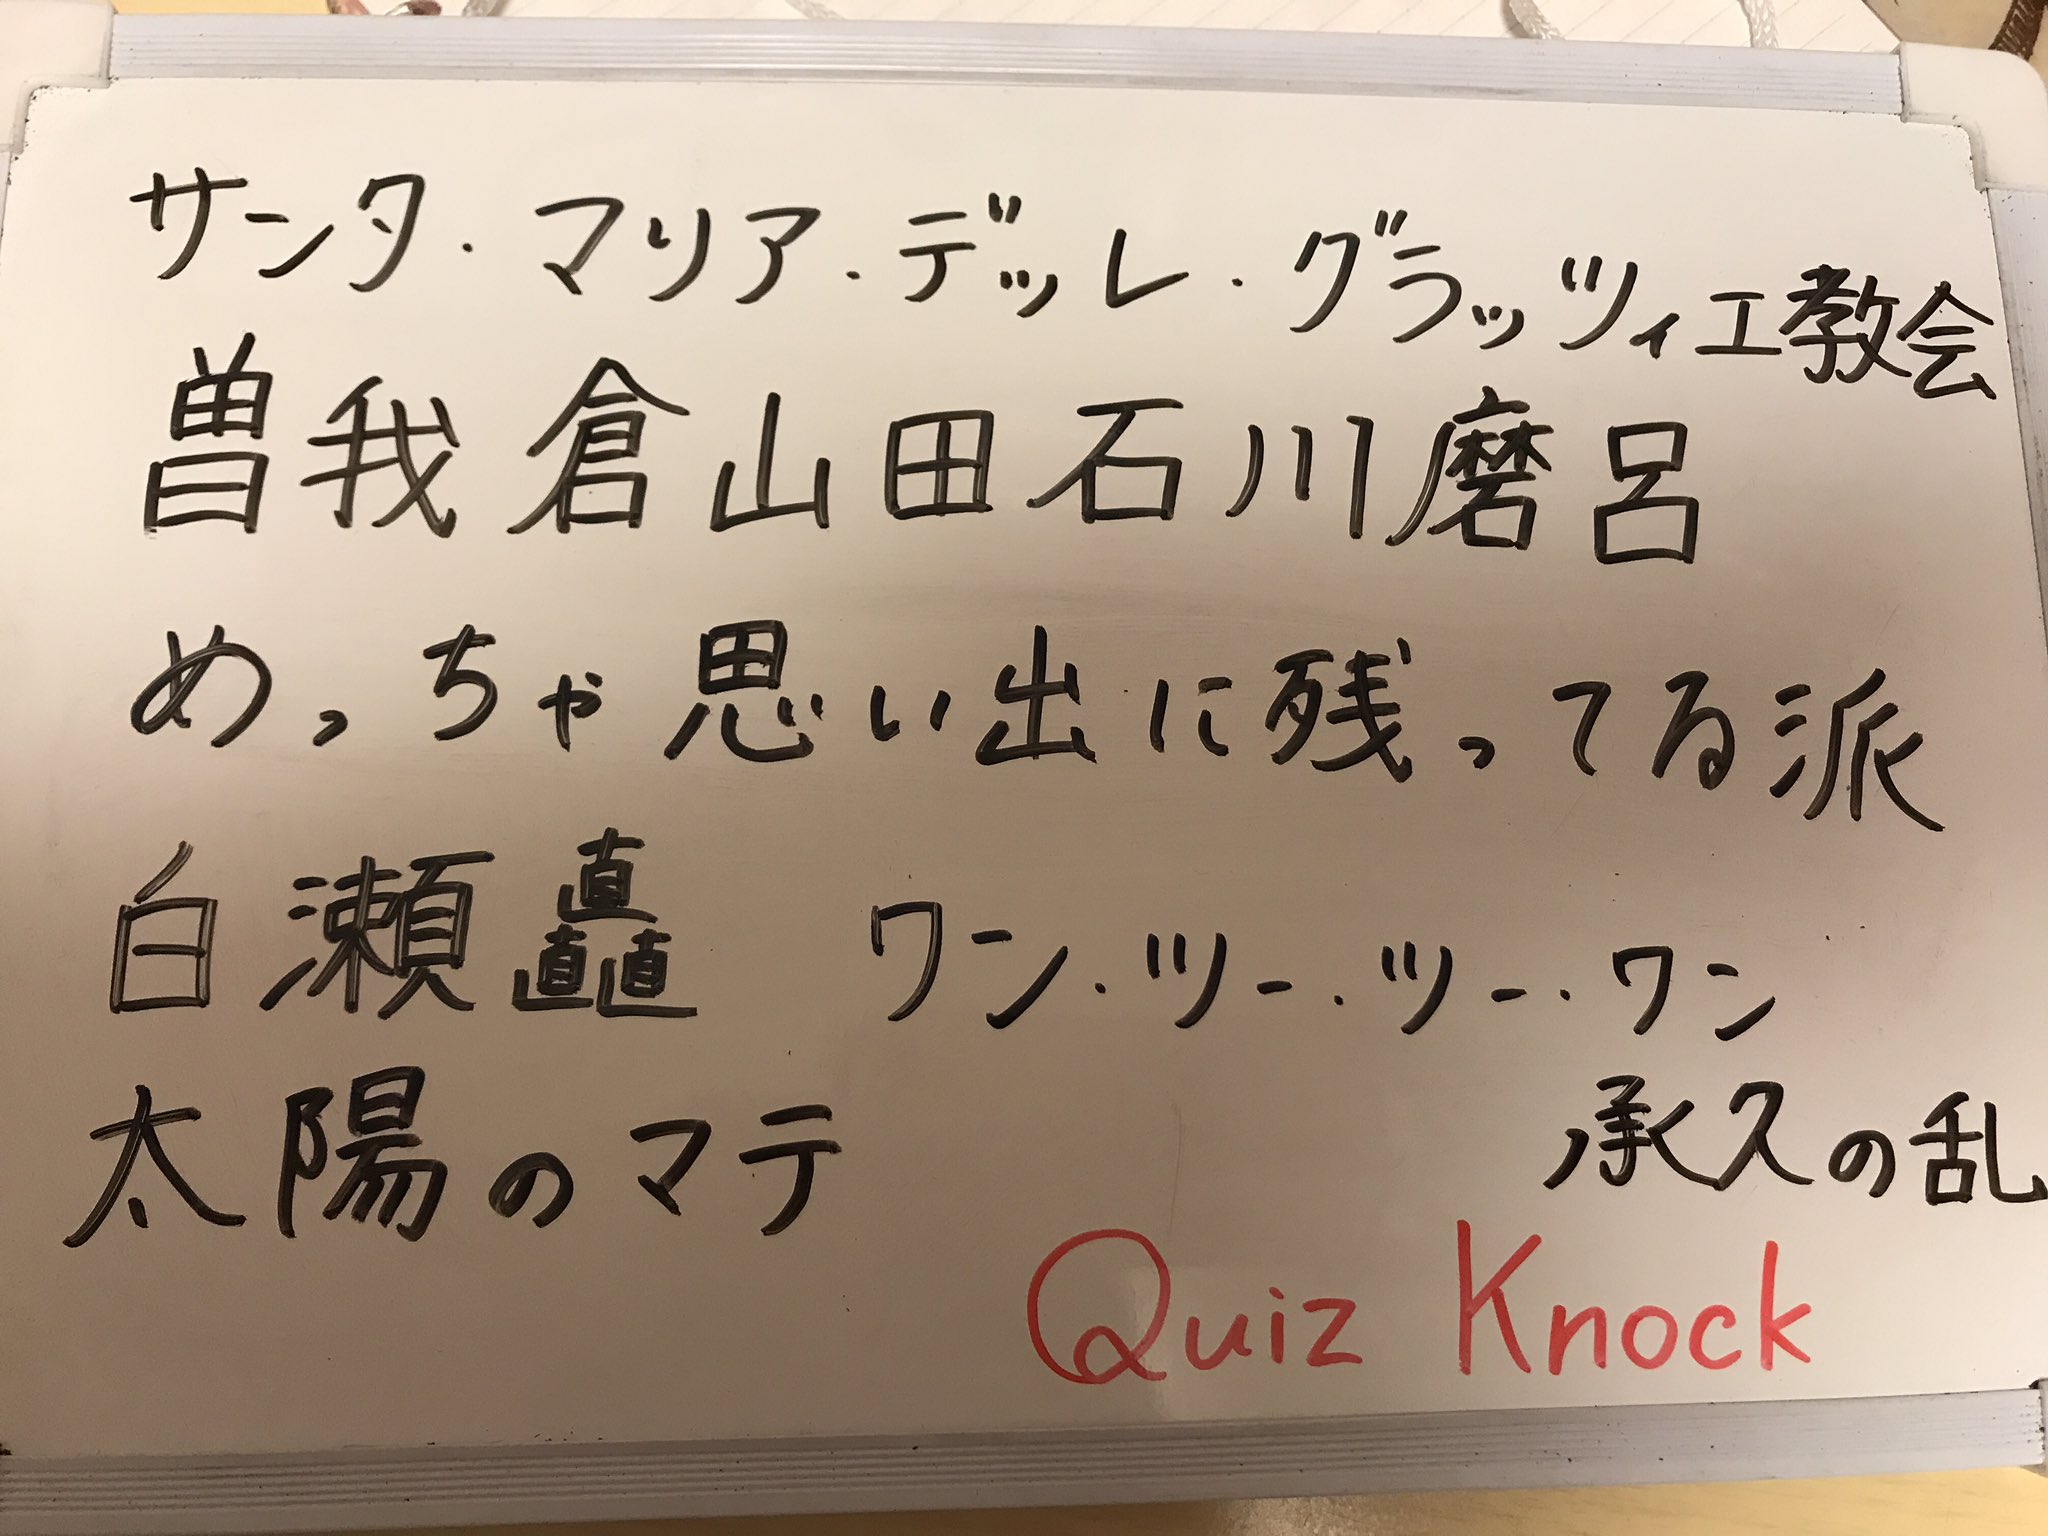 サンタ・マリア・デッレ・グラッツィエ教会
曽我倉山田石川磨呂
めっちゃ思い出に残ってる派
白瀬矗 ワン・ツー・ツー・ワン
太陽のマテ 承久の乱
Quiz Knock